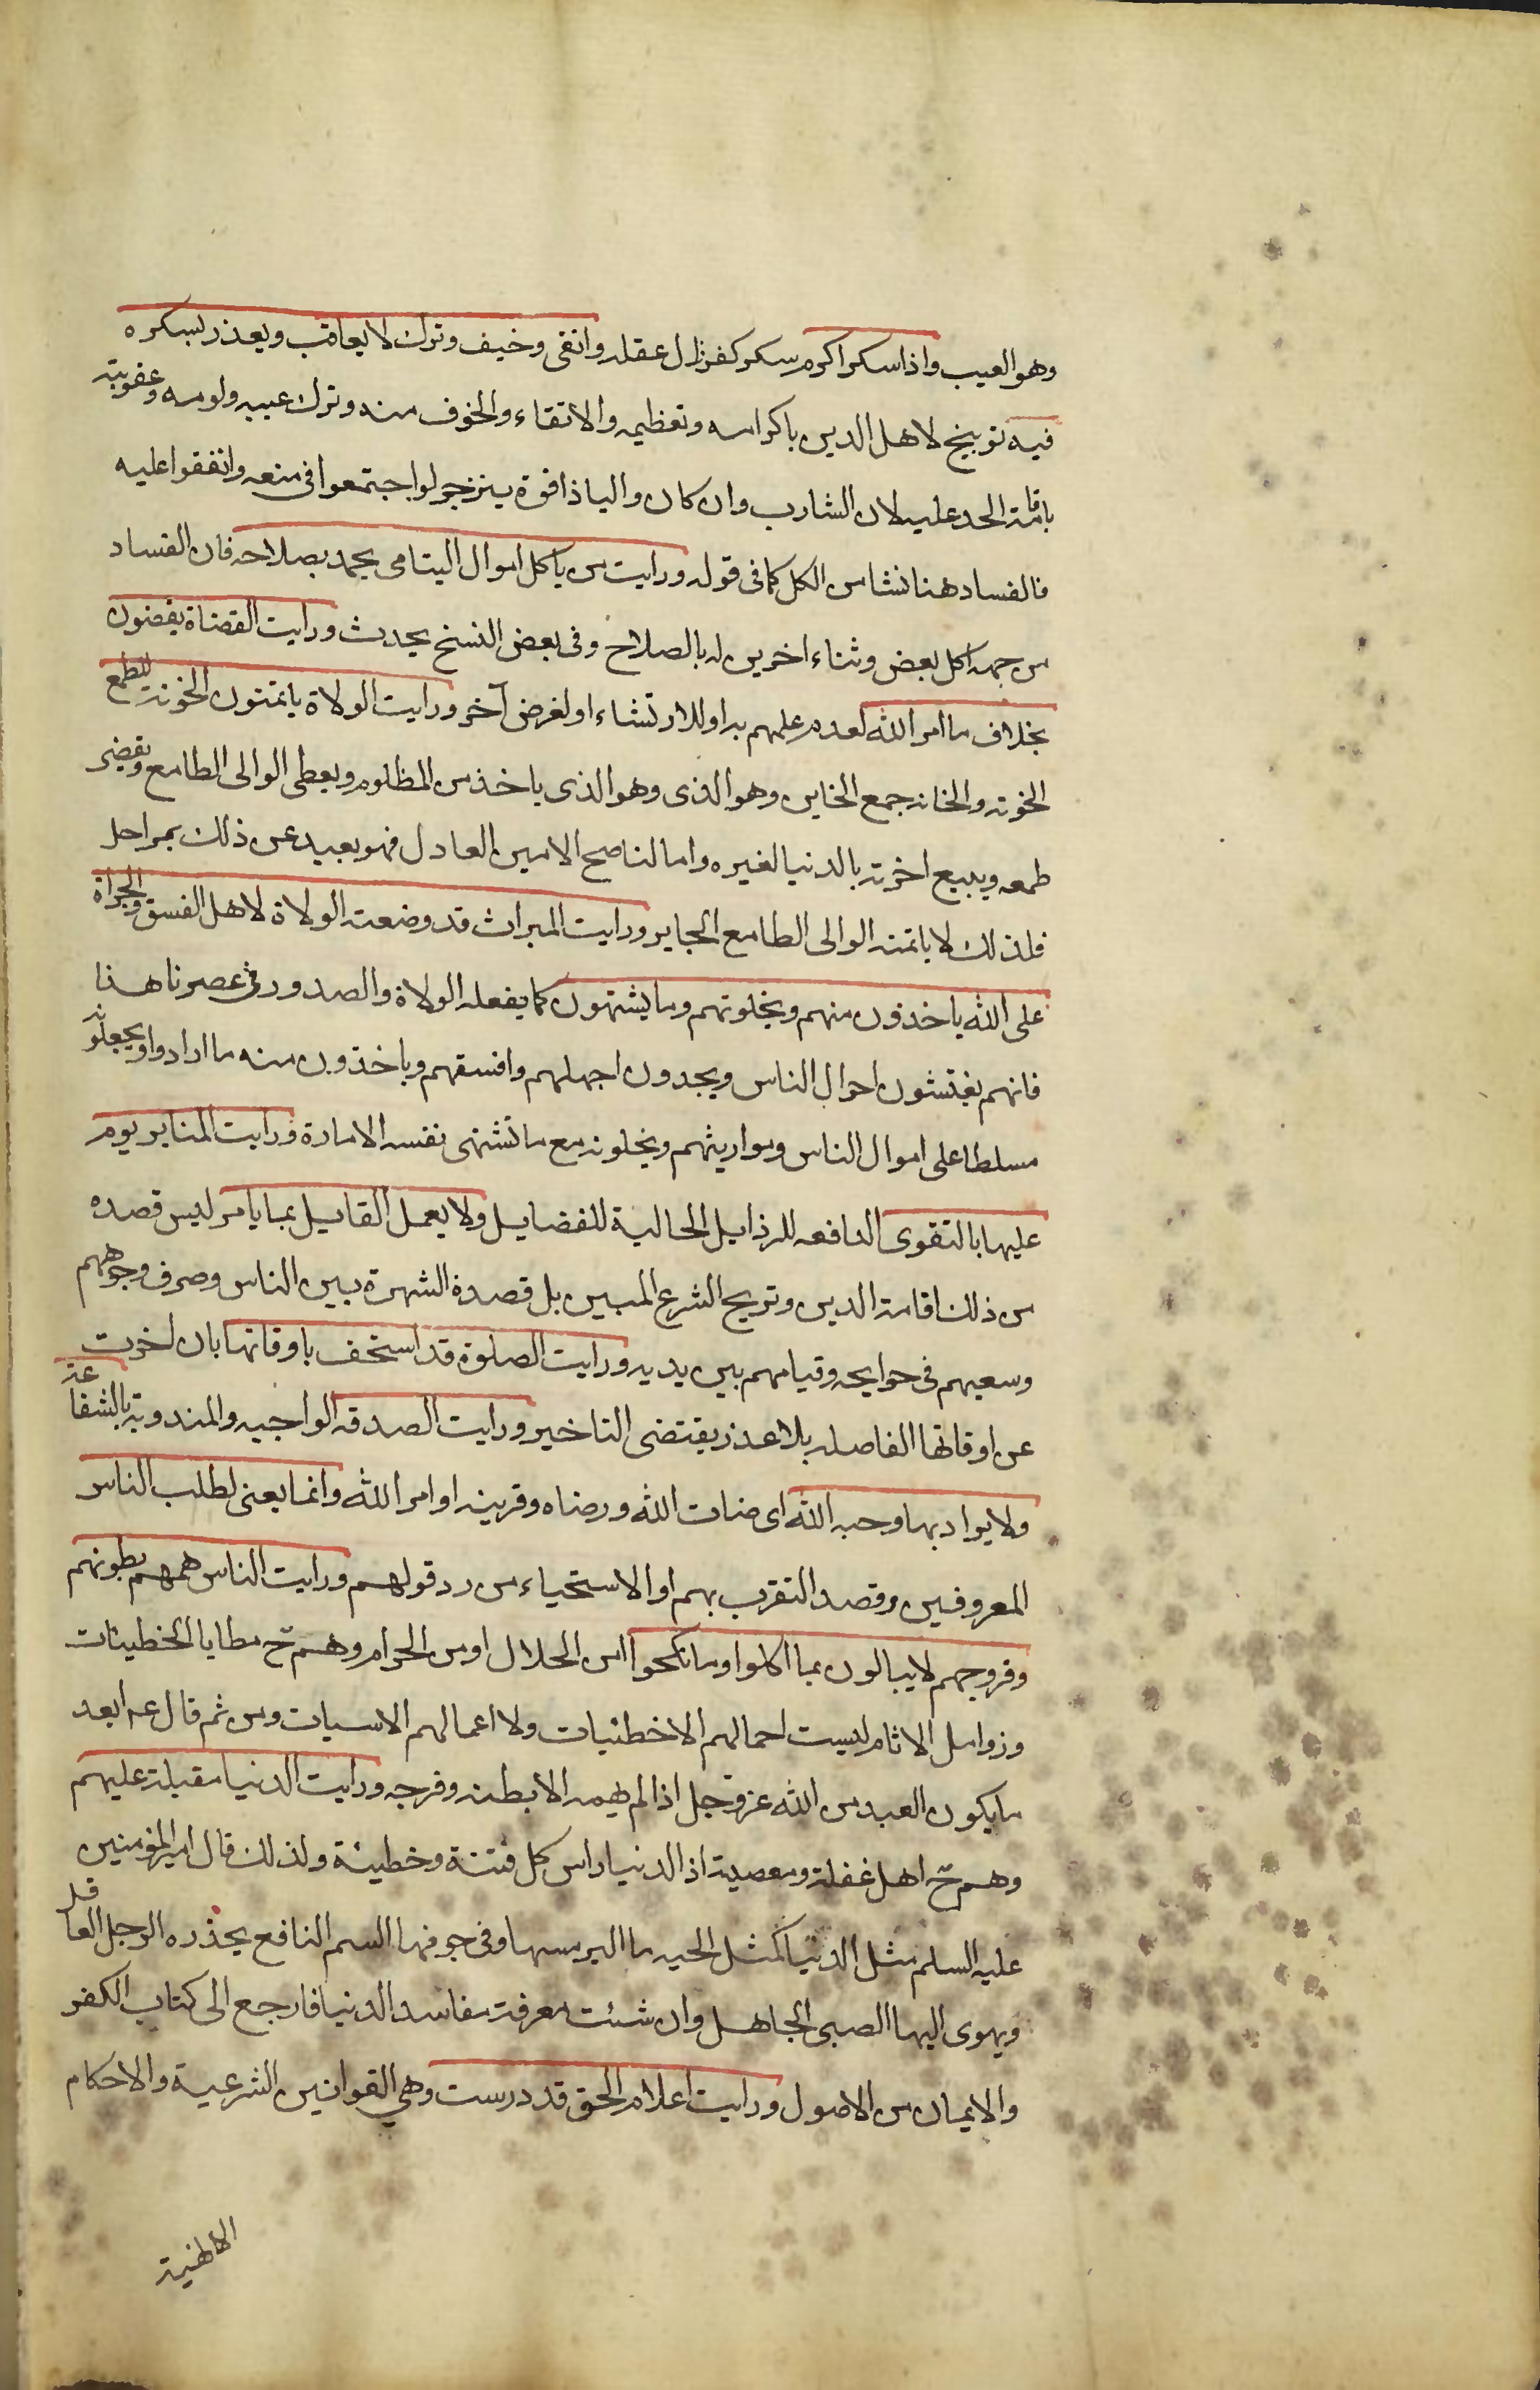 وهو العيب واذا سكر اكرم سكر كفر زال عقله واتقى وخيف وترك لا يعاقب ويعذر لسكره
فيه توبيخ لاهل الدين باكرامه وتعظيمه والاتقاء والخوف منه وترك عيبه ولومه وعقوبته
باقامة الحد عليه لان الشارب وان كان واليا ذا قوة ينزجر لو اجتمعوا فى منعه واتفقوا عليه
فالفساد هنا نشا من الكل كما فى قوله ورايت من ياكل اموال اليتامى يحمد بصلاحه فان الفساد
من جهه اكل بعض وثناء اخرين له بالصلاح وفى بعض النسخ يحدث ورايت القضاة يقضون
بخلاف ما امر الله لعدم علمهم به او للارتشاء او لغرض آخر ورايت الولاة ياتمنون الخونة للطمع
الخونه والخانه جمع الخاين وهو الذى وهو الذى ياخذ من المظلوم ويعطى الوالى الطامع ويقضى
طمعه ويبيع اخرته بالدنيا لغيره واما الناصح الامين العادل فهو بعيد عن ذلك بمراحل
فلذلك لا ياتمنه الوالى الطامع الجاير ورايت الميراث قد وضعته الولاة لاهل الفسق والجراة
على الله ياخذون منهم ويخلونهم وما يشتهون كما يفعله الولاة والصدور فى عصرنا هذا
فانهم يفتشون احوال الناس ويجدون اجهلهم وافسقهم وياخذون منه ما ارادوا ويجعلونه
مسلطا على اموال الناس ومواريثهم ويخلونه مع ما تشتهى نفسه الامارة ورايت المنابر يومر
عليها بالتقوى الدافعه للرذايل الجالبة للفضايل ولا يعمل القايل بما يامر ليس قصده
من ذلك اقامة الدين وترويج الشرع المبين بل قصده الشهرة بين الناس وصرف وجوههم
وسعيهم فى حوايجه وقيامهم بين يديه ورايت الصلوة قد استخف باوقاتها بان اخرت
عن اوقاتها الفاصله بلا عذر يقتضى التاخير ورايت الصدقه الواجبه والمندوبة بالشفاعة
ولا يراد بها وجه الله اى ضات الله ورضاه وقرينه اوامر الله وانما يعنى لطلب الناس
المعروفين وقصد التقرب بهم او الاستحياء من رد قولهم ورايت الناس همهم بطونهم
وفروجهم لا يبالون بما اكلوا وما نكحوا امن الحلال او من الحرام وهم ح مطايا الخطيئات
وزوامل الاثام ليست احمالهم الا خطئيات ولا اعمالهم الا سيات ومن ثم قال عه ابعد
ما يكون العبد من الله عز وجل اذا لم يهمه الا بطنه وفرجه ورايت الدنيا مقبلة عليهم
وهم ح اهل غفلة ومعصية اذ الدنيا راس كل فتنة وخطيئة ولذلك قال امير المؤمنين
عليه السلم مثل الدنيا كمثل الحيه ما الين مسها وفى جوفها السم النافع يحذره الرجل العاقل
ويهوى اليها الصبى الجاهل وان شئت معرفة مفاسد الدنيا فارجع الى كتاب الكفر
والايمان من الاصول ورايت اعلام الحق قد درست وهي القوانين الشرعية والاحكام
الالهية